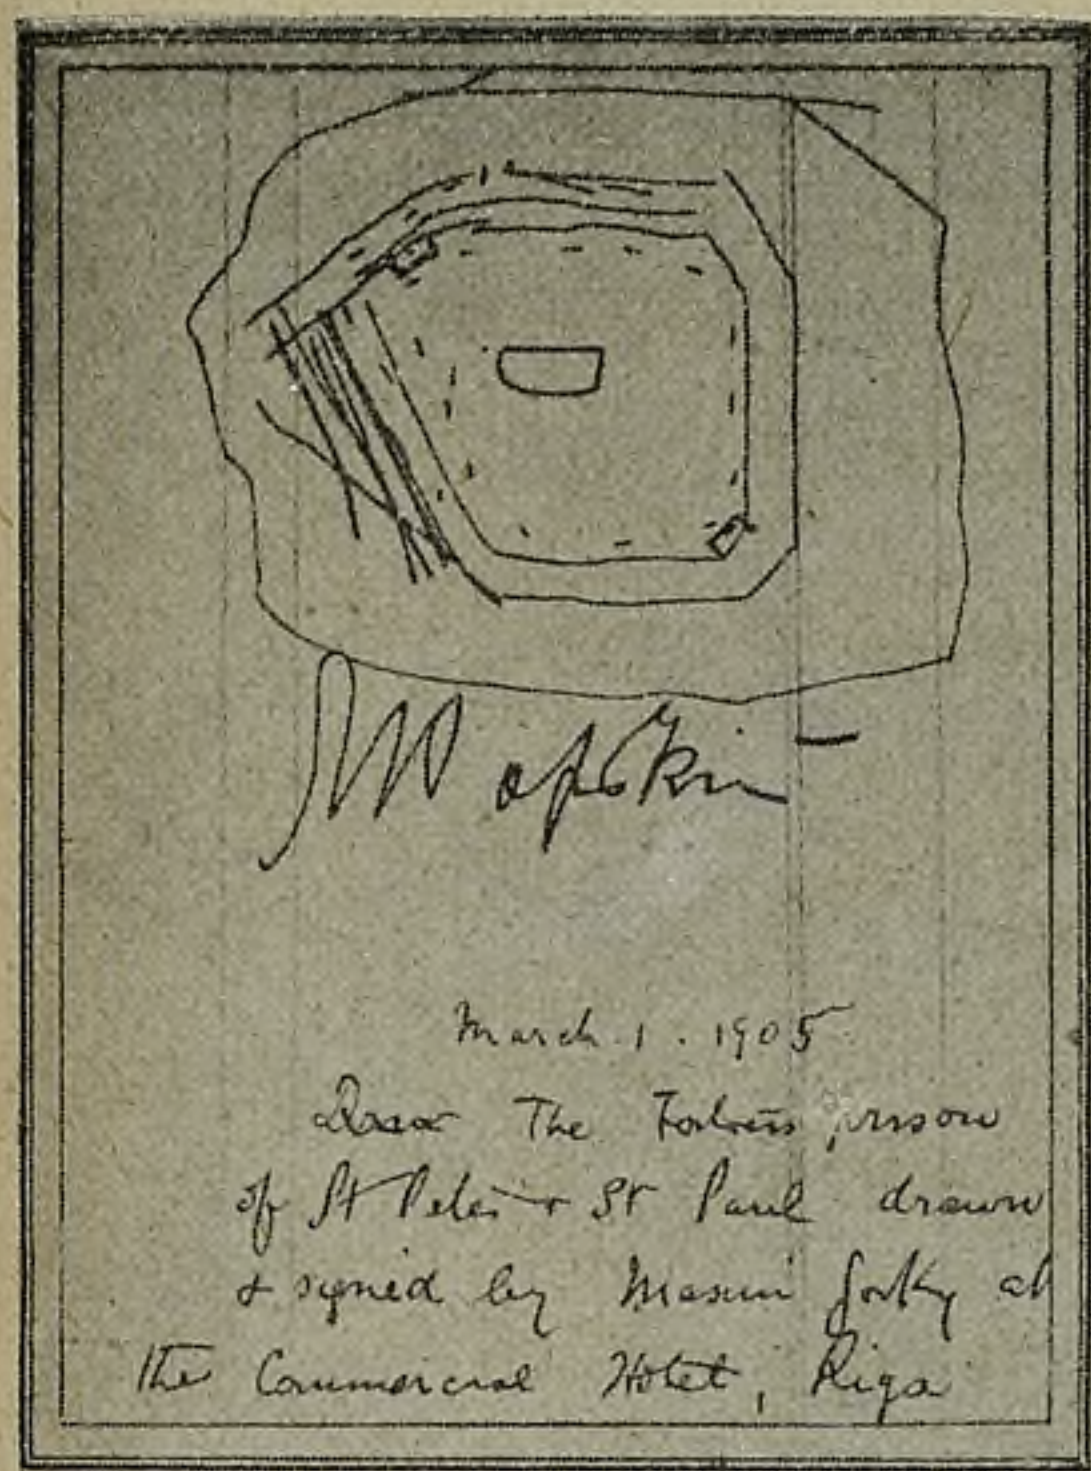 М Горький
March 1. 1905
The Fortress prison
of St Peter + St Paul drawn
& signed by Maxim Gorky at
the Commercial Hotel, Riga